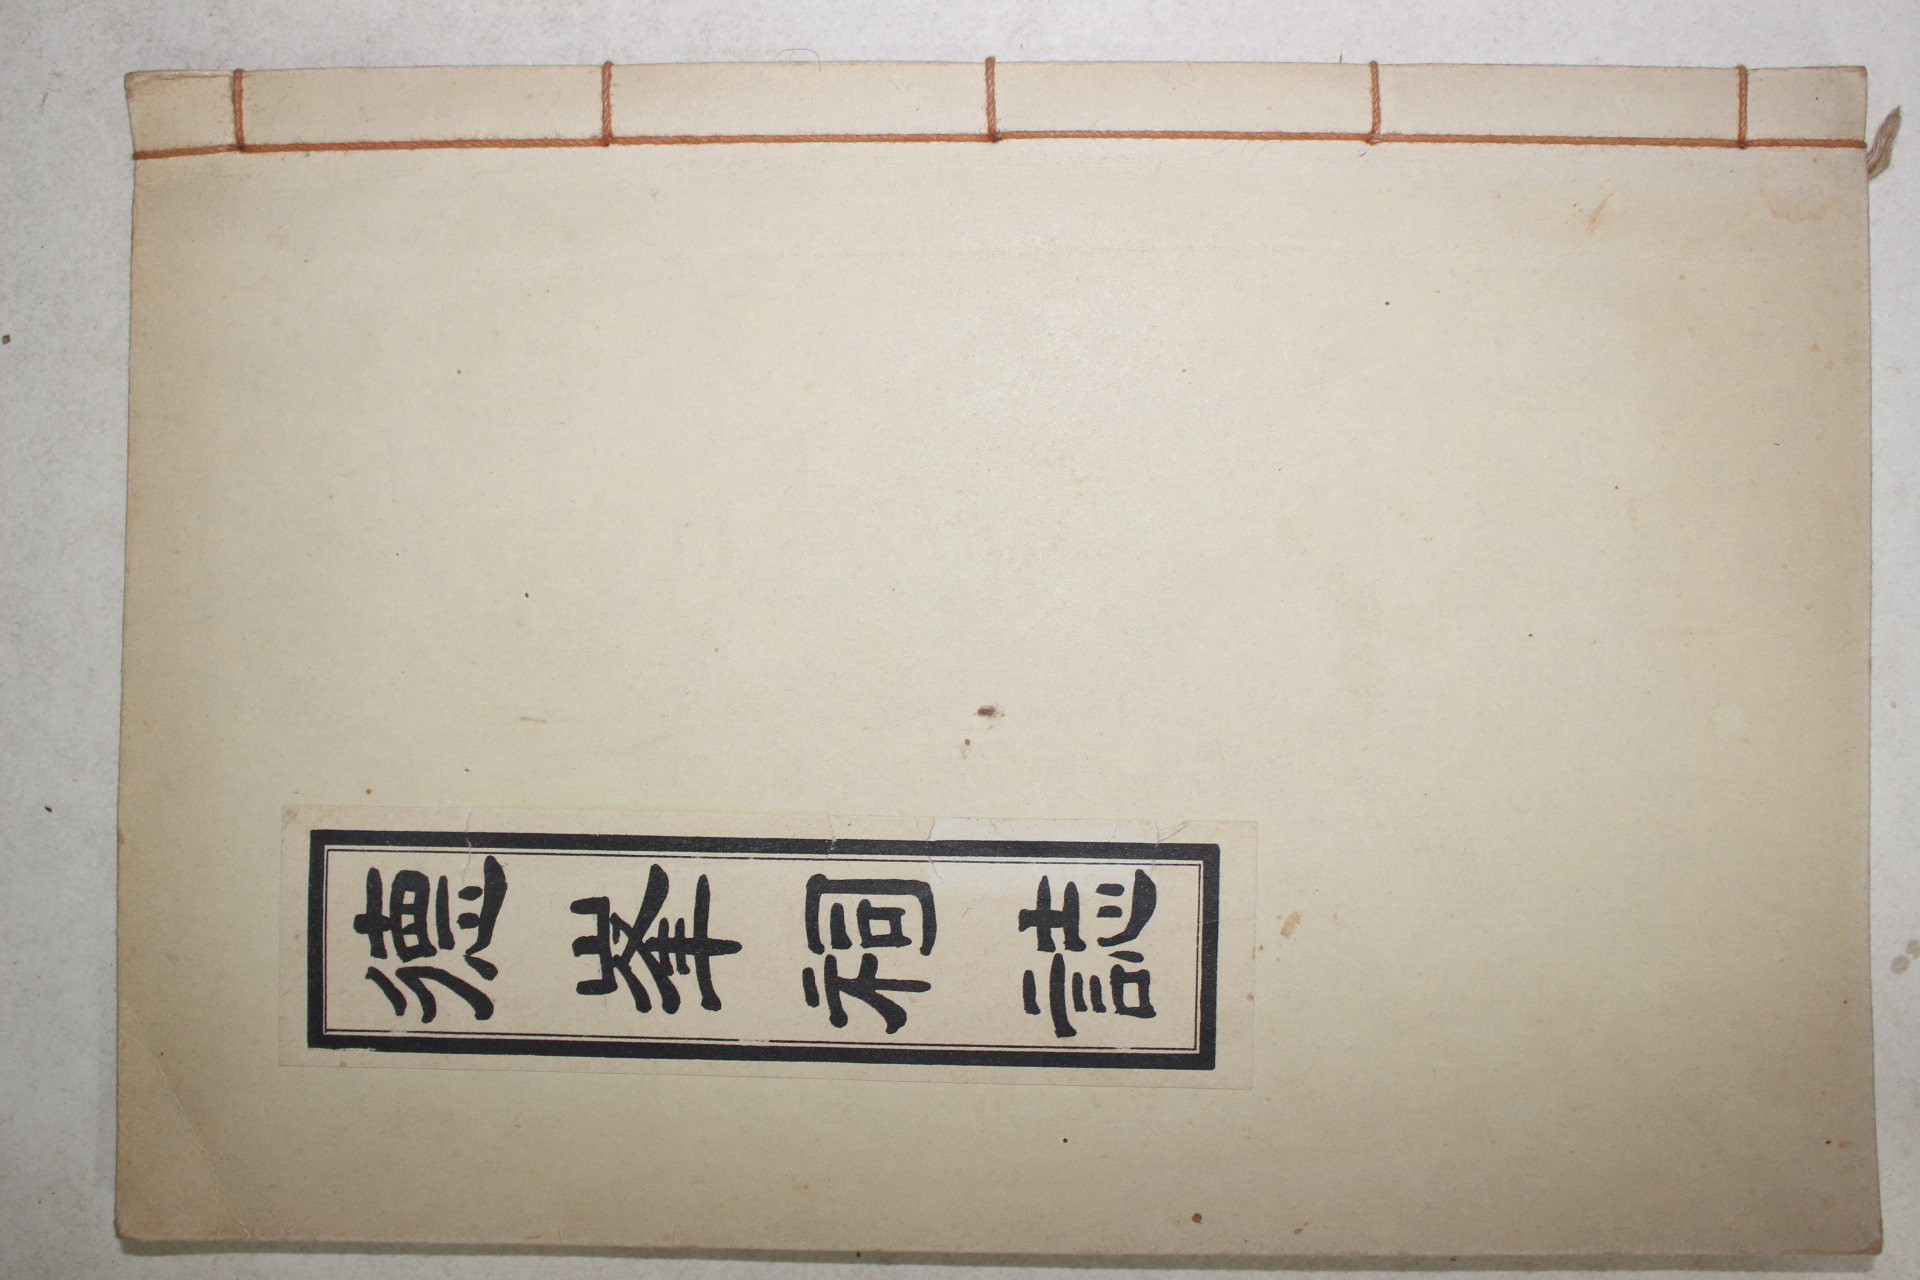 德峯祠誌